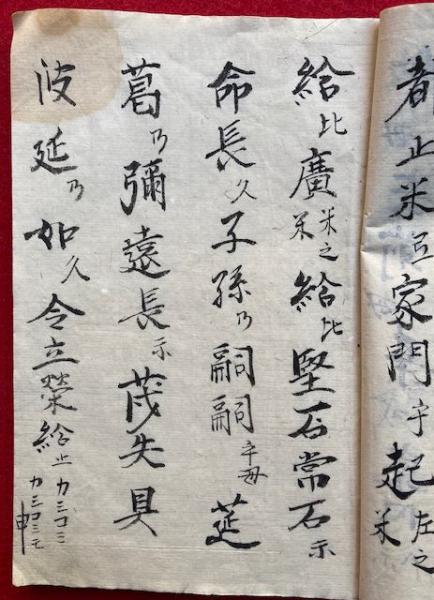 都止米弖家門乎起左之米
給比廣米之米給比堅石常石示
命長久子孫乃嗣嗣乎毋莚
葛乃彌遠長示茂矢具
波延乃如久令立榮給止カシコミカシコミモ申